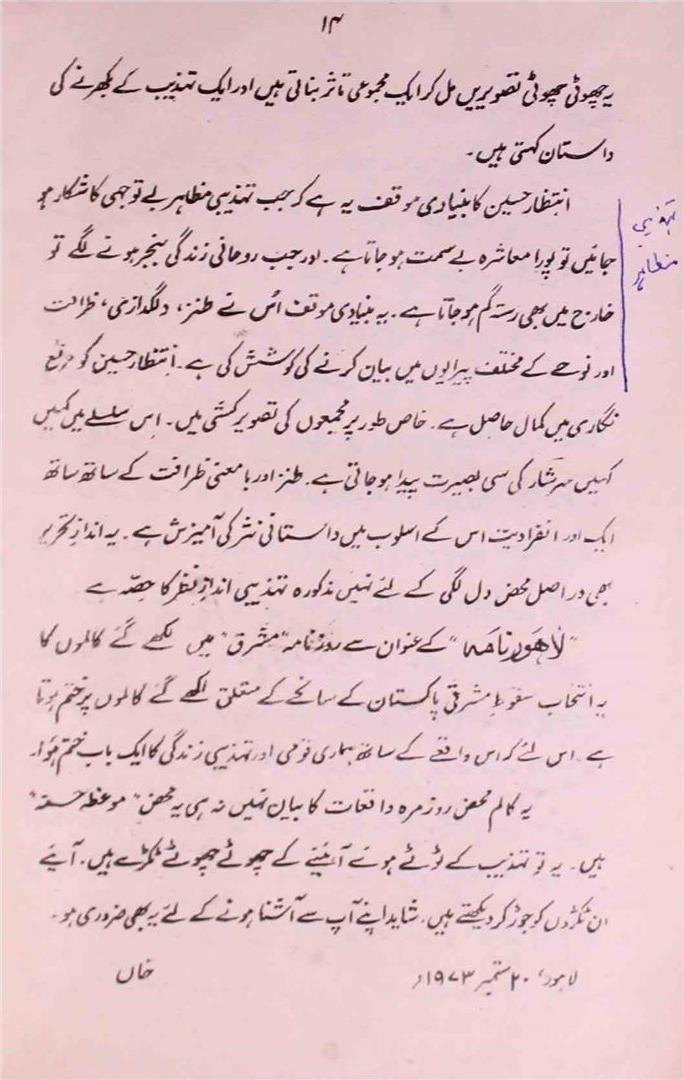 ۱۴
یہ چھوٹی چھوٹی تصویریں مل کر ایک مجموعی تاثر بناتی ہیں اور ایک تہذیب کے بکھرنے کی
داستان کہتی ہیں۔
انتظار حسین کا بنیادی موقف یہ ہے کہ جب تہذیبی مظاہر بے توجہی کا شکار ہو
جائیں تو پورا معاشرہ بے سمت ہو جاتا ہے۔ اور جب روحانی زندگی بنجر ہونے لگے تو
خارج میں بھی رستہ گم ہو جاتا ہے۔ یہ بنیادی موقف اُس نے طنز، دلگدازی، ظرافت
اور نوحے کے مختلف پیرایوں میں بیان کرنے کی کوشش کی ہے۔ انتظار حسین کو مرقع
نگاری میں کمال حاصل ہے۔ خاص طور پر مجمعوں کی تصویر کشی میں۔ اس سلسلے میں کہیں
کہیں سرشار کی سی بصیرت پیدا ہو جاتی ہے۔ طنز اور با معنی ظرافت کے ساتھ ساتھ
ایک اور انفرادیت اس کے اسلوب میں داستانی نثر کی آمیزش ہے۔ یہ اندازِ تحریر
بھی در اصل محض دل لگی کے لئے نہیں مذکورہ تہذیبی اندازِ نظر کا حصّہ ہے
"لاہور نامہ" کے عنوان سے روزنامہ "مشرق" میں لکھے گئے کالموں کا
یہ انتخاب سقوطِ مشرقی پاکستان کے سانحے کے متعلق لکھے گئے کالموں پر ختم ہوتا
ہے۔ اس لئے کہ اس واقعے کے ساتھ ہماری قومی اور تہذیبی زندگی کا ایک باب ختم ہوا۔
یہ کالم محض روز مرہ واقعات کا بیان نہیں نہ ہی یہ محض "موعظہ حسنہ"
ہیں۔ یہ تو تہذیب کے ٹوٹے ہوئے آئینے کے چھوٹے چھوٹے ٹکڑے ہیں۔ آیئے
ان ٹکڑوں کو جوڑ کر دیکھتے ہیں۔ شاید اپنے آپ سے آشنا ہونے کے لئے یہ بھی ضروری ہو۔
لاہور، ۲۰ ستمبر ۱۹۷۳ء خاں
تہذیبی
مظاہر